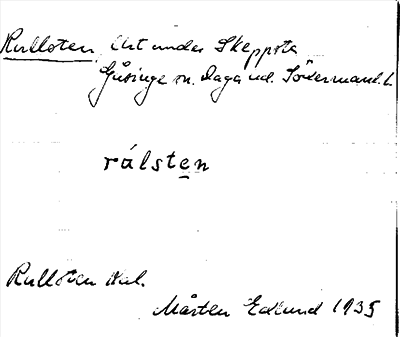 Rullsten, Urt under Skeppsta
Gåsinge sn. Daga hd. Södermanl. l.
rálsten
Rullsten Kul.
Mårten Edlund 1935